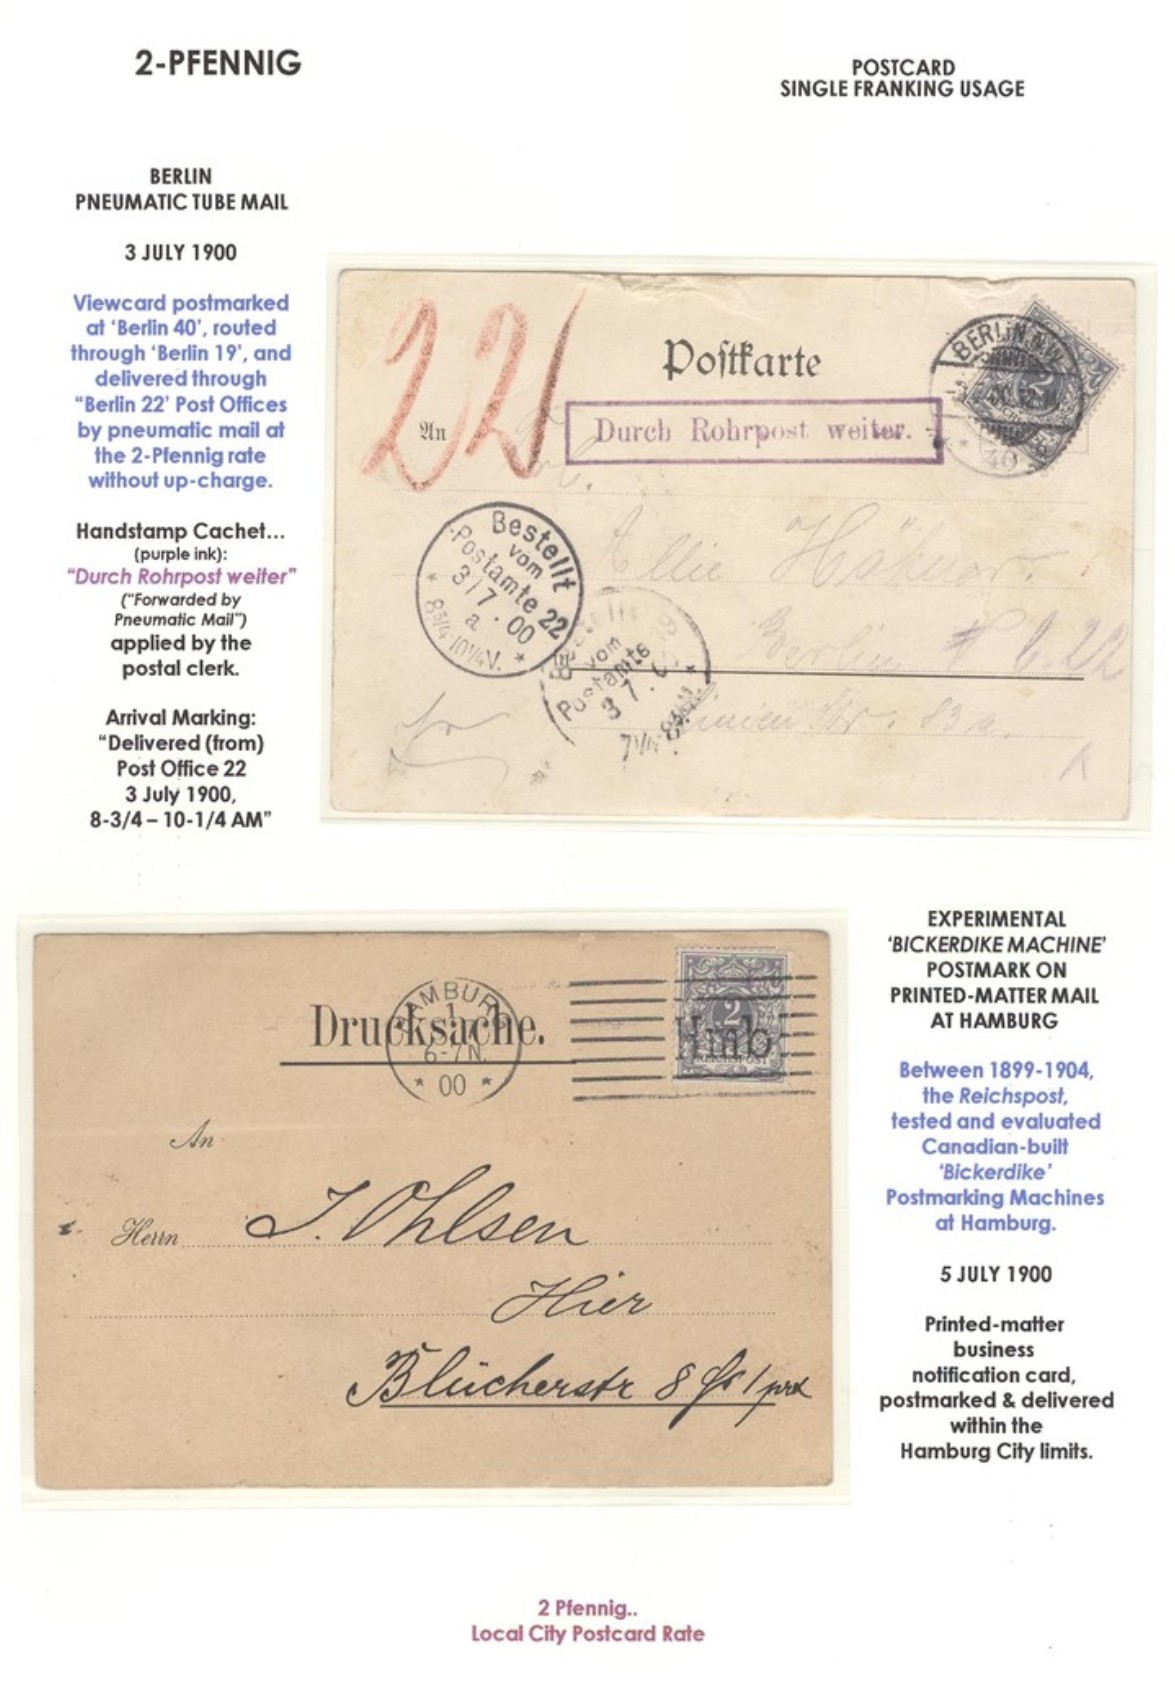 2-PFENNIG
POSTCARD
SINGLE FRANKING USAGE
BERLIN
PNEUMATIC TUBE MAIL
3 JULY 1900
Viewcard postmarked
at ‘Berlin 40’, routed
through ‘Berlin 19’, and
delivered through
“Berlin 22’ Post Offices
by pneumatic mail at
the 2-Pfennig rate
without up-charge.
Handstamp Cachet...
(purple ink):
“Durch Rohrpost weiter”
(“Forwarded by
Pneumatic Mail”)
applied by the
postal clerk.
Arrival Marking:
“Delivered (from)
Post Office 22
3 July 1900,
8-3/4 – 10-1/4 AM”
22
Postkarte
An
Durch Rohrpost weiter.
BERLIN N.W.
2
40
Bestellt
vom
Postamte 22
3/7.00
a
8¾-10¼V.
Bestellt
vom
Postamte
3 7. 0
Berlin
22
83a.
EXPERIMENTAL
‘BICKERDIKE MACHINE’
POSTMARK ON
PRINTED-MATTER MAIL
AT HAMBURG
Between 1899-1904,
the Reichspost,
tested and evaluated
Canadian-built
‘Bickerdike’
Postmarking Machines
at Hamburg.
5 JULY 1900
Printed-matter
business
notification card,
postmarked & delivered
within the
Hamburg City limits.
HAMBURG
1
6-7N.
* 00 *
Drucksache.
2
REICHSPOST
Hmb
An
Herrn J. Ohlsen
Hier
Blücherstr 8
2 Pfennig..
Local City Postcard Rate